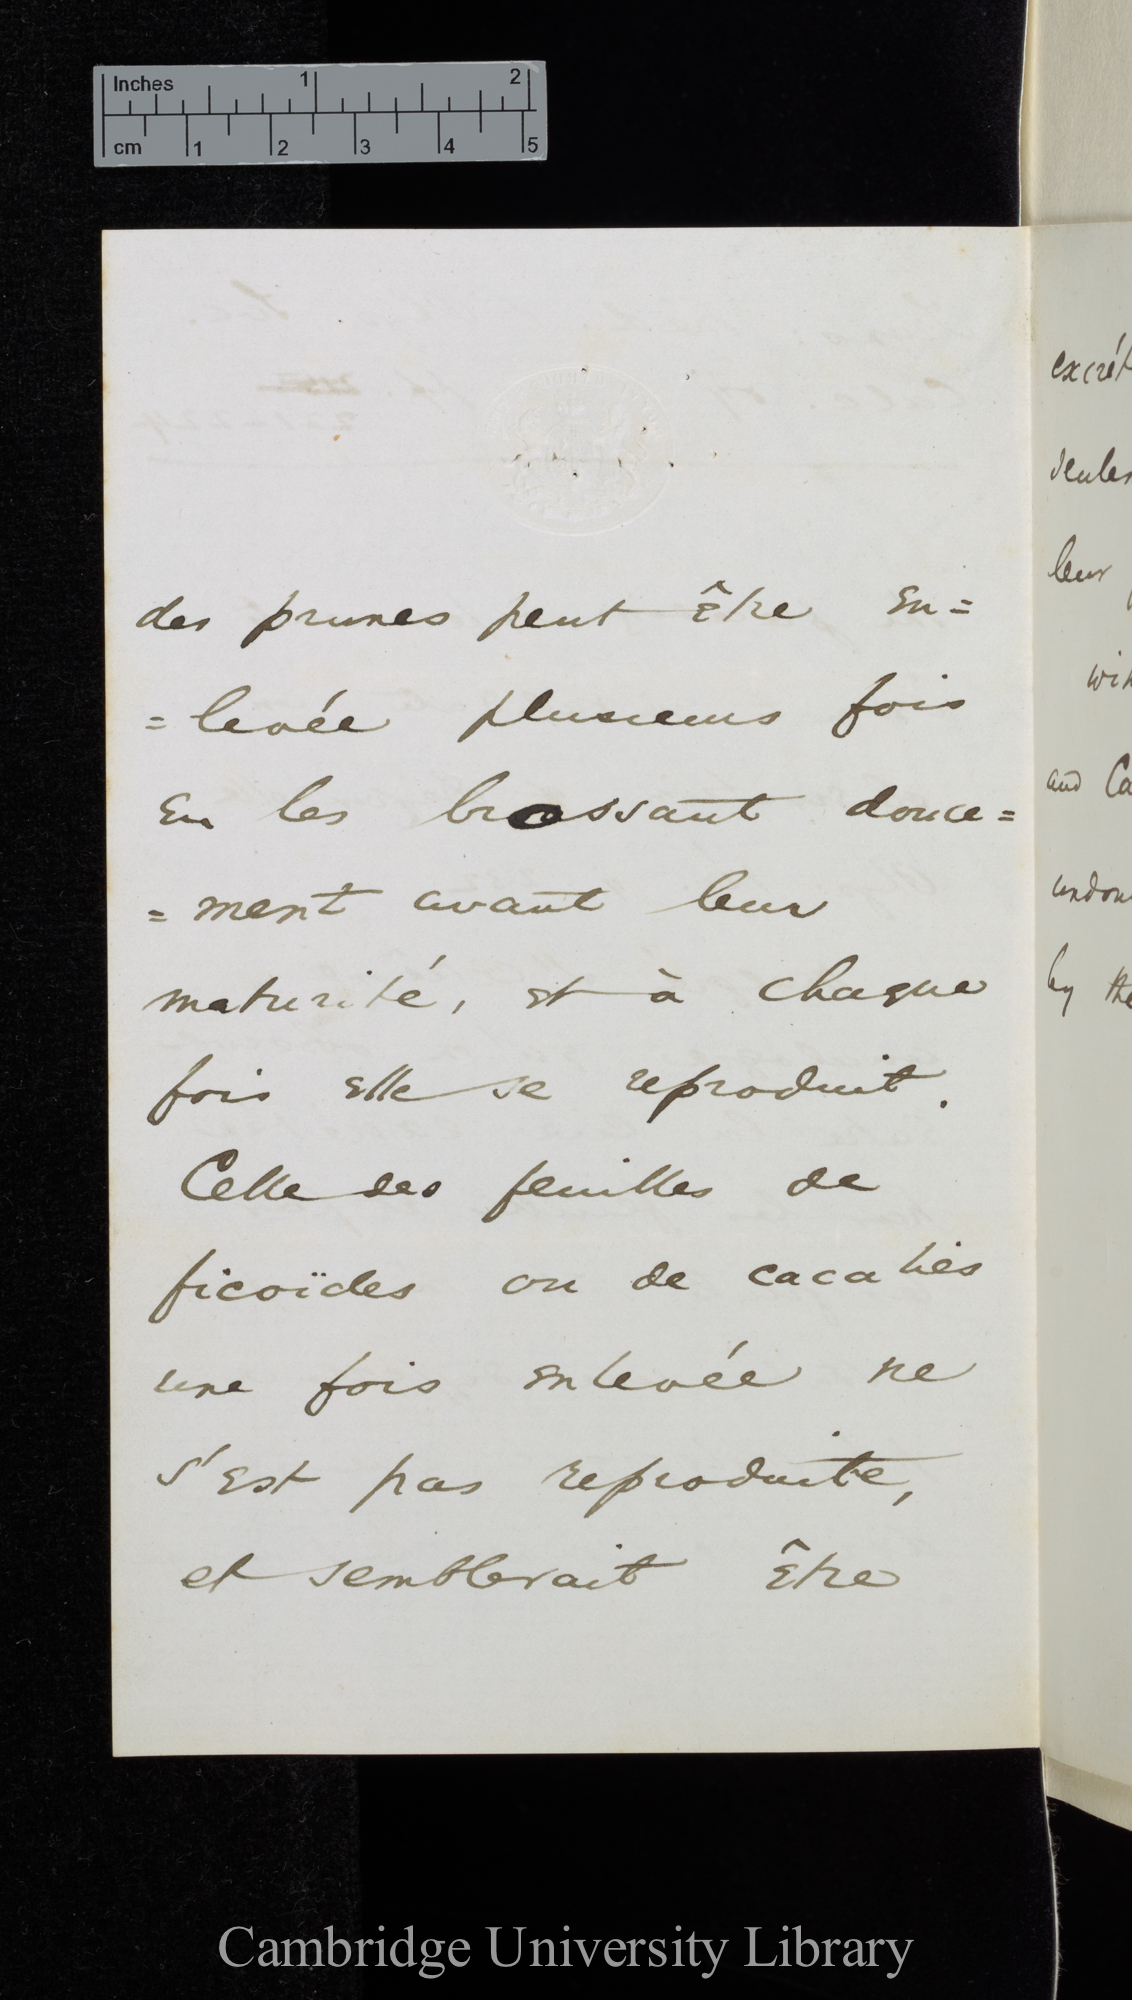 Inches 1 2
cm 1 2 3 4 5
des prunes peut être en=
=levée plusieurs fois
en les brossant douce=
=ment avant leur
maturité, et à chaque
fois elle se reproduit.
Celle des feuilles de
ficoïdes ou de cacalies
une fois enlevée ne
s'est pas reproduite,
et semblerait être
excrét
seules
leur
wi
and Ca
undou
by the
Cambridge University Library